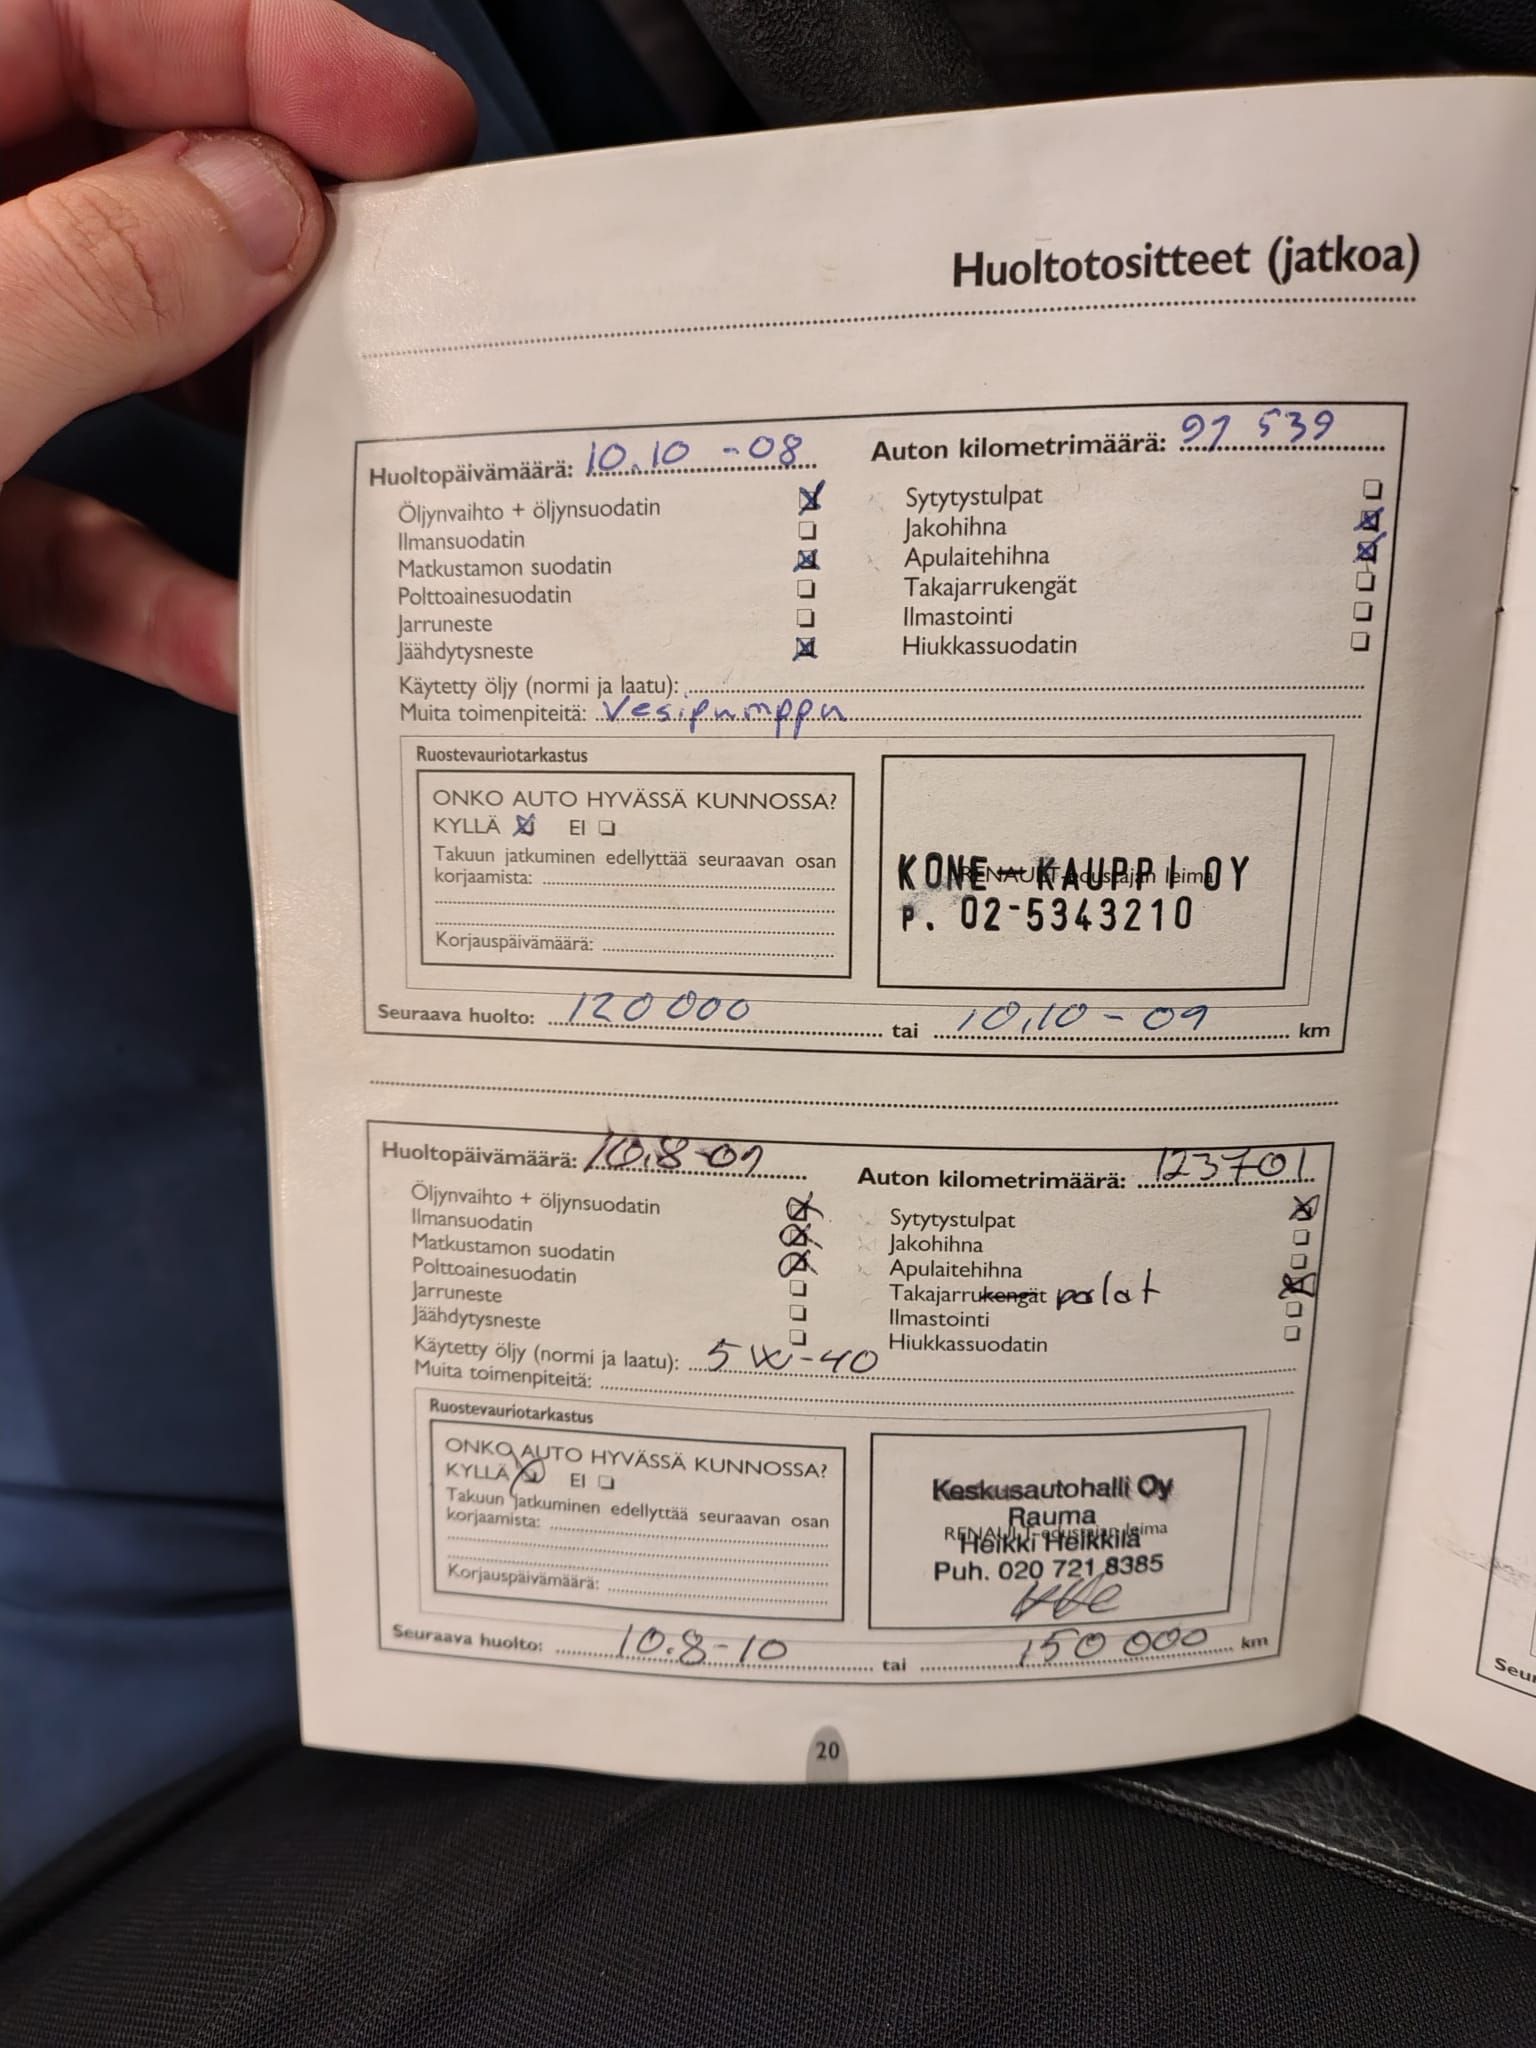 Huoltotositteet (jatkoa)
Huoltopäivämäärä: 10.10 -08 Auton kilometrimäärä: 91 539
Öljynvaihto + öljynsuodatin Sytytystulpat
Ilmansuodatin Jakohihna
Matkustamon suodatin Apulaitehihna
Polttoainesuodatin Takajarrukengät
Jarruneste Ilmastointi
Jäähdytysneste Hiukkassuodatin
Käytetty öljy (normi ja laatu):
Muita toimenpiteitä: Vesipumppu
Ruostevauriotarkastus
ONKO AUTO HYVÄSSÄ KUNNOSSA?
KYLLÄ EI
Takuun jatkuminen edellyttää seuraavan osan
korjaamista:
Korjauspäivämäärä:
RENAULT-edustajan leima
KONE-KAUPPI OY
P. 02-5343210
Seuraava huolto: 120 000 tai 10.10-09 km
Huoltopäivämäärä: 10.8-09 Auton kilometrimäärä: 123701
Öljynvaihto + öljynsuodatin Sytytystulpat
Ilmansuodatin Jakohihna
Matkustamon suodatin Apulaitehihna
Polttoainesuodatin Takajarrukengät palat
Jarruneste Ilmastointi
Jäähdytysneste Hiukkassuodatin
Käytetty öljy (normi ja laatu): 5W-40
Muita toimenpiteitä:
Ruostevauriotarkastus
ONKO AUTO HYVÄSSÄ KUNNOSSA?
KYLLÄ EI
Takuun jatkuminen edellyttää seuraavan osan
korjaamista:
Korjauspäivämäärä:
Keskusautohalli Oy
Rauma
RENAULT-edustajan leima
Heikki Heikkilä
Puh. 020 721 8385
Seuraava huolto: 10.8-10 tai 150 000 km
20